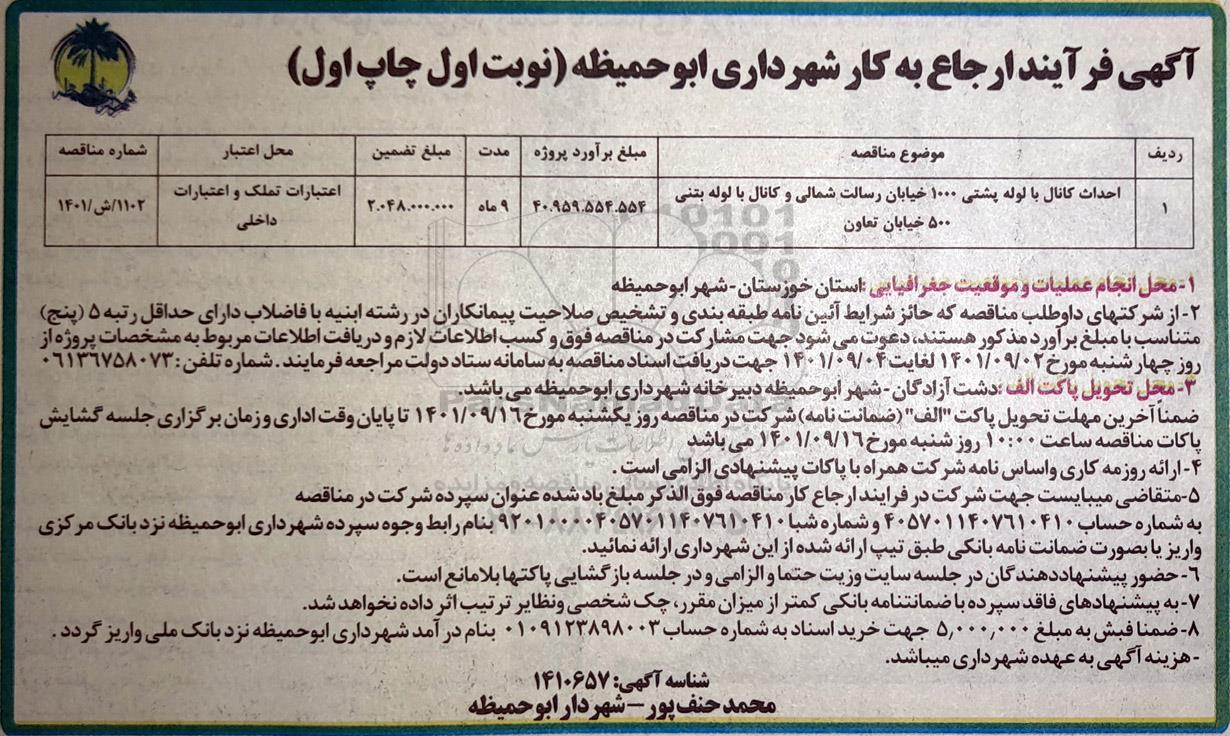 آگهی فرآیند ارجاع به کار شهرداری ابوحمیظه (نوبت اول چاپ اول)
ردیف موضوع مناقصه مبلغ برآورد پروژه مدت مبلغ تضمین محل اعتبار شماره مناقصه
۱ احداث کانال با لوله پشتی ۱۰۰۰ خیابان رسالت شمالی و کانال با لوله بتنی ۴۰.۹۵۹.۵۵۴.۵۵۴ ۹ ماه ۲.۰۴۸.۰۰۰.۰۰۰ اعتبارات تملک و اعتبارات ۱۱۰۲/ش/۱۴۰۱
۵۰۰ خیابان تعاون داخلی
۱-محل انجام عملیات و موقعیت جغرافیایی :استان خوزستان-شهر ابوحمیظه
۲-از شرکتهای داوطلب مناقصه که حائز شرایط آئین نامه طبقه بندی و تشخیص صلاحیت پیمانکاران در رشته ابنیه با فاضلاب دارای حداقل رتبه ۵ (پنج)
متناسب با مبلغ برآورد مذکور هستند، دعوت می شود جهت مشارکت در مناقصه فوق و کسب اطلاعات لازم و دریافت اطلاعات مربوط به مشخصات پروژه از
روز چهار شنبه مورخ ۱۴۰۱/۰۹/۰۲ لغایت ۱۴۰۱/۰۹/۰۴ جهت دریافت اسناد مناقصه به سامانه ستاد دولت مراجعه فرمایند. شماره تلفن: ۰۶۱۳۶۷۵۸۰۷۳
۳-محل تحویل پاکت الف :دشت آزادگان -شهر ابوحمیظه دبیرخانه شهرداری ابوحمیظه می باشد.
ضمنا آخرین مهلت تحویل پاکت "الف" (ضمانت نامه) شرکت در مناقصه روز یکشنبه مورخ ۱۴۰۱/۰۹/۱۶ تا پایان وقت اداری و زمان برگزاری جلسه گشایش
پاکات مناقصه ساعت ۱۰:۰۰ روز شنبه مورخ ۱۴۰۱/۰۹/۱۶ می باشد
۴-ارائه روزمه کاری واساس نامه شرکت همراه با پاکات پیشنهادی الزامی است .
۵-متقاضی میبایست جهت شرکت در فرایند ارجاع کار مناقصه فوق الذکر مبلغ یاد شده عنوان سپرده شرکت در مناقصه
به شماره حساب ۴۰۵۷۰۱۱۴۰۷۶۱۰۴۱۰ و شماره شبا ۹۲۰۱۰۰۰۰۴۰۵۷۰۱۱۴۰۷۶۱۰۴۱۰ بنام رابط وجوه سپرده شهرداری ابوحمیظه نزد بانک مرکزی
واریز یا بصورت ضمانت نامه بانکی طبق تیپ ارائه شده از این شهرداری ارائه نمائید.
۶-حضور پیشنهاددهندگان در جلسه سایت وزیت حتما و الزامی و در جلسه بازگشایی پاکتها بلامانع است.
۷-به پیشنهادهای فاقد سپرده با ضمانتنامه بانکی کمتر از میزان مقرر، چک شخصی ونظایر ترتیب اثر داده نخواهد شد.
۸-ضمنا فبش به مبلغ ۵,۰۰۰,۰۰۰ جهت خرید اسناد به شماره حساب ۰۱۰۹۱۲۳۸۹۸۰۰۳ بنام در آمد شهرداری ابوحمیظه نزد بانک ملی واریز گردد .
-هزینه آگهی به عهده شهرداری میباشد.
شناسه آگهی: ۱۴۱۰۶۵۷
محمد حنف پور –شهردار ابوحمیظه